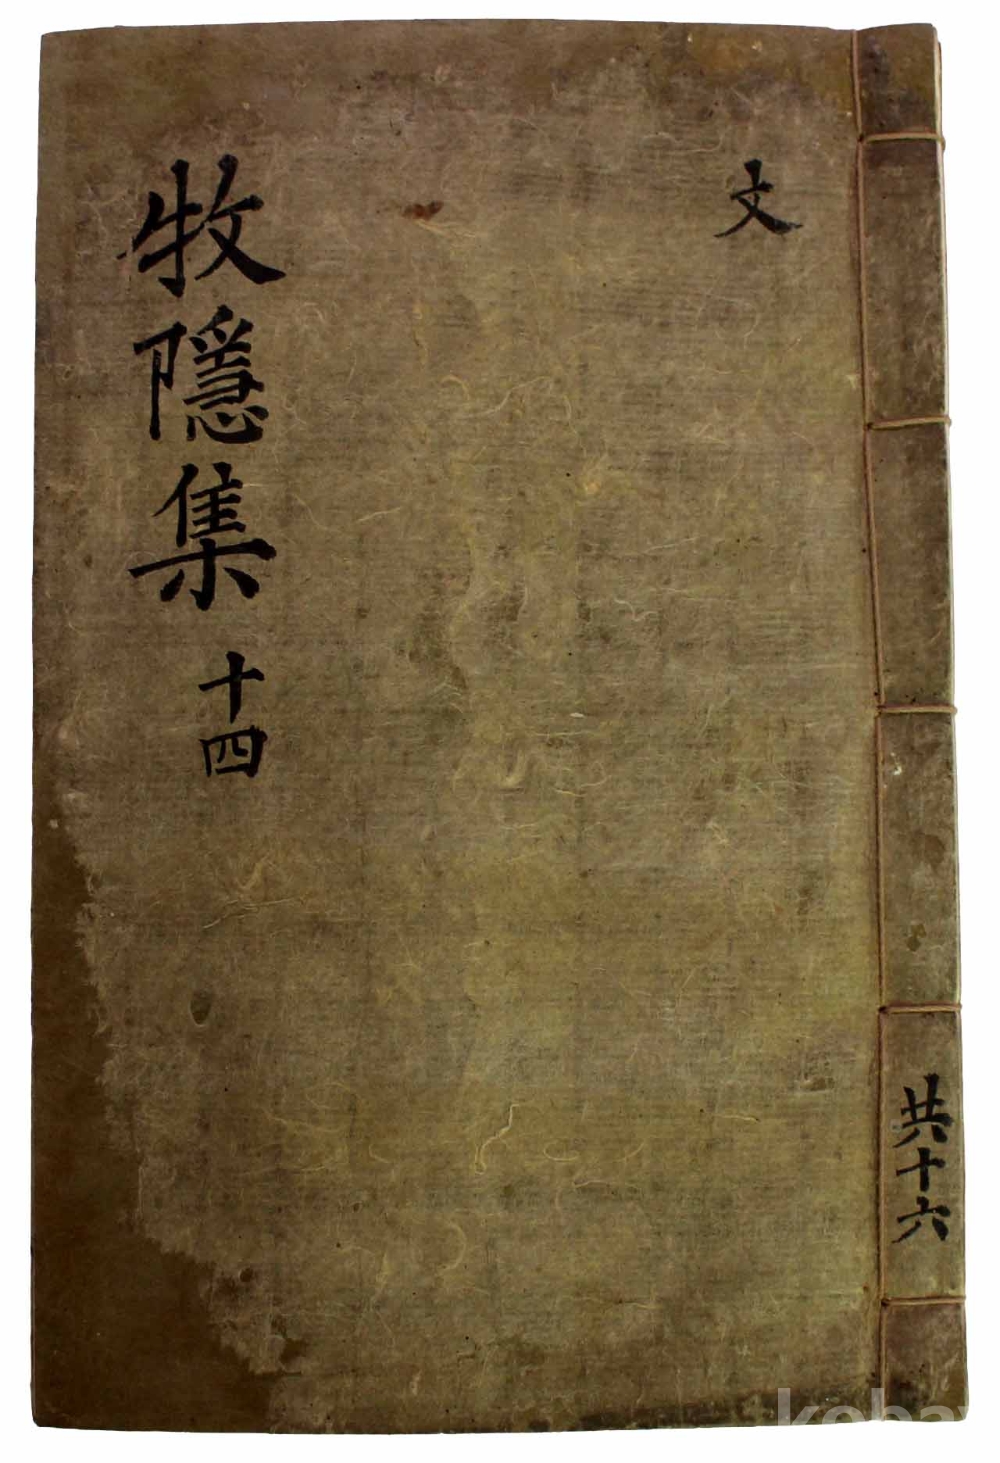 文
牧隱集 十四
共十六